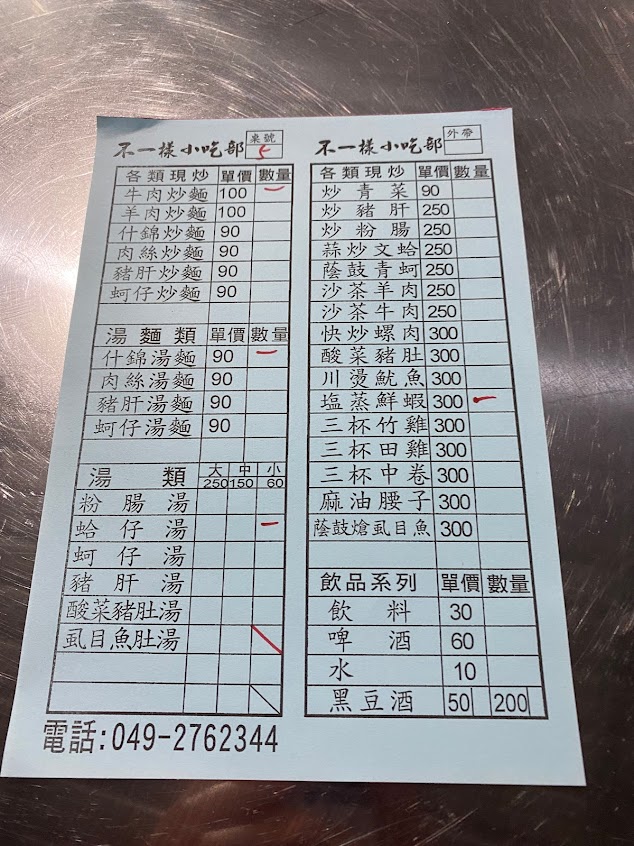 不一樣小吃部 桌號 5
各類現炒 單價 數量
牛肉炒麵 100 一
羊肉炒麵 100
什錦炒麵 90
肉絲炒麵 90
豬肝炒麵 90
蚵仔炒麵 90
湯麵類 單價 數量
什錦湯麵 90 一
肉絲湯麵 90
豬肝湯麵 90
蚵仔湯麵 90
湯類 大250 中150 小60
粉腸湯
蛤仔湯 一
蚵仔湯
豬肝湯
酸菜豬肚湯
虱目魚肚湯
電話:049-2762344
不一樣小吃部 外帶
各類現炒 單價 數量
炒青菜 90
炒豬肝 250
炒粉腸 250
蒜炒文蛤 250
蔭鼓青蚵 250
沙茶羊肉 250
沙茶牛肉 250
快炒螺肉 300
酸菜豬肚 300
川燙魷魚 300
塩蒸鮮蝦 300 一
三杯竹雞 300
三杯田雞 300
三杯中卷 300
麻油腰子 300
蔭鼓熗虱目魚 300
飲品系列 單價 數量
飲料 30
啤酒 60
水 10
黑豆酒 50 200